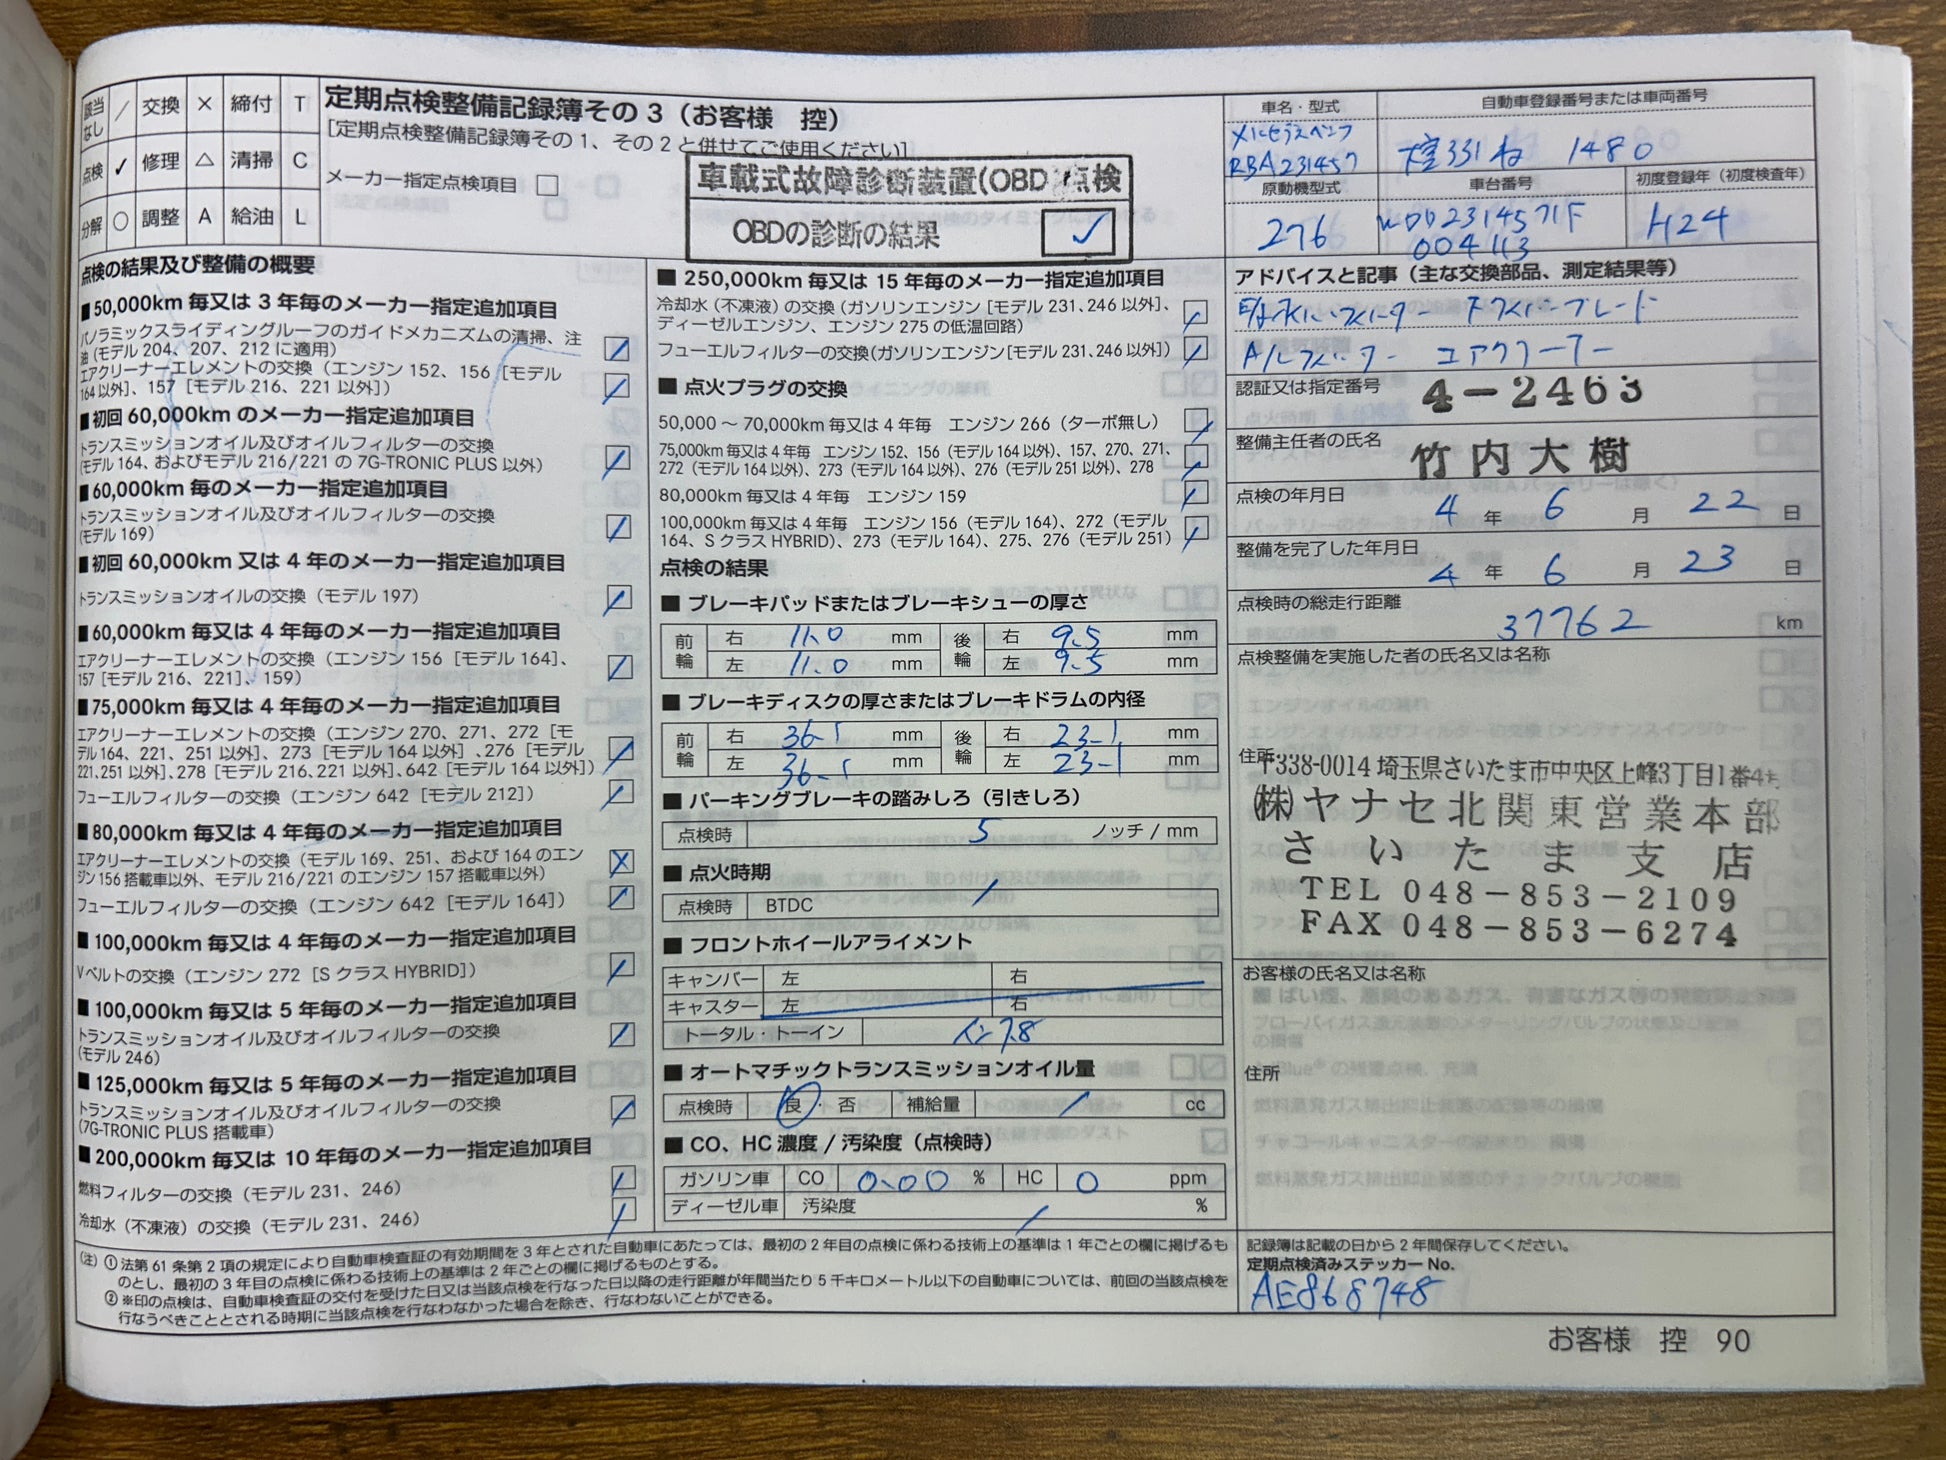 該当なし / 交換 × 締付 T
点検 ✓ 修理 △ 清掃 C
分解 ○ 調整 A 給油 L
定期点検整備記録簿その3（お客様 控）
[定期点検整備記録簿その1、その2と併せてご使用ください]
メーカー指定点検項目 □
車載式故障診断装置(OBD)点検
OBDの診断の結果 ✓
車名・型式
メルセデスベンツ
RBA231457
自動車登録番号または車両番号
331 ね 1480
原動機型式
276
車台番号
WDD2314571F
004113
初度登録年（初度検査年）
H24
点検の結果及び整備の概要
■50,000km毎又は3年毎のメーカー指定追加項目
パノラミックスライディングルーフのガイドメカニズムの清掃、注
油（モデル204、207、212に適用）
エアクリーナーエレメントの交換（エンジン152、156［モデル
164以外］、157［モデル216、221以外］）
■初回60,000kmのメーカー指定追加項目
トランスミッションオイル及びオイルフィルターの交換
（モデル164、およびモデル216/221の7G-TRONIC PLUS以外）
■60,000km毎のメーカー指定追加項目
トランスミッションオイル及びオイルフィルターの交換
（モデル169）
■初回60,000km又は4年毎のメーカー指定追加項目
トランスミッションオイルの交換（モデル197）
■60,000km毎又は4年毎のメーカー指定追加項目
エアクリーナーエレメントの交換（エンジン156［モデル164］、
157［モデル216、221］、159）
■75,000km毎又は4年毎のメーカー指定追加項目
エアクリーナーエレメントの交換（エンジン270、271、272［モ
デル164、221、251以外］、273［モデル164以外］、276［モデル
221,251以外］、278［モデル216、221以外］、642［モデル164以外］）
フューエルフィルターの交換（エンジン642［モデル212］）
■80,000km毎又は4年毎のメーカー指定追加項目
エアクリーナーエレメントの交換（モデル169、251、および164のエン
ジン156搭載車以外、モデル216/221のエンジン157搭載車以外）
フューエルフィルターの交換（エンジン642［モデル164］）
■100,000km毎又は4年毎のメーカー指定追加項目
Vベルトの交換（エンジン272［SクラスHYBRID］）
■100,000km毎又は5年毎のメーカー指定追加項目
トランスミッションオイル及びオイルフィルターの交換
（モデル246）
■125,000km毎又は5年毎のメーカー指定追加項目
トランスミッションオイル及びオイルフィルターの交換
（7G-TRONIC PLUS搭載車）
■200,000km毎又は10年毎のメーカー指定追加項目
燃料フィルターの交換（モデル231、246）
冷却水（不凍液）の交換（モデル231、246）
■250,000km毎又は15年毎のメーカー指定追加項目
冷却水（不凍液）の交換（ガソリンエンジン［モデル231、246以外］、
ディーゼルエンジン、エンジン275の低温回路）
フューエルフィルターの交換（ガソリンエンジン［モデル231、246以外］）
■点火プラグの交換
50,000～70,000km毎又は4年毎 エンジン266（ターボ無し）
75,000km毎又は4年毎 エンジン152、156（モデル164以外）、157、270、271、
272（モデル164以外）、273（モデル164以外）、276（モデル251以外）、278
80,000km毎又は4年毎 エンジン159
100,000km毎又は4年毎 エンジン156（モデル164）、272（モデル
164、SクラスHYBRID）、273（モデル164）、275、276（モデル251）
点検の結果
■ブレーキパッドまたはブレーキシューの厚さ
前輪 右 11.0 mm 後輪 右 9.5 mm
左 11.0 mm 左 9.5 mm
■ブレーキディスクの厚さまたはブレーキドラムの内径
前輪 右 36-1 mm 後輪 右 23-1 mm
左 36-1 mm 左 23-1 mm
■パーキングブレーキの踏みしろ（引きしろ）
点検時 5 ノッチ / mm
■点火時期
点検時 BTDC /
■フロントホイールアライメント
キャンバー 左 右
キャスター 左 右
トータル・トーイン
■オートマチックトランスミッションオイル量
点検時 良・否 補給量 / cc
■CO、HC濃度 / 汚染度（点検時）
ガソリン車 CO 0.00 % HC 0 ppm
ディーゼル車 汚染度 / %
アドバイスと記事（主な交換部品、測定結果等）
ワイパーブレード
A/Cフィルター エアクリーナー
認証又は指定番号 4-2463
整備主任者の氏名 竹内大樹
点検の年月日 4 年 6 月 22 日
整備を完了した年月日 4 年 6 月 23 日
点検時の総走行距離 37762 km
点検整備を実施した者の氏名又は名称
住所
〒338-0014 埼玉県さいたま市中央区上峰3丁目1番4
(株)ヤナセ北関東営業本部
さいたま支店
TEL 048-853-2109
FAX 048-853-6274
お客様の氏名又は名称
住所
記録簿は記載の日から2年間保存してください。
定期点検済みステッカーNo.
AE868748
（注）①法第61条第2項の規定により自動車検査証の有効期間を3年とされた自動車にあたっては、最初の2年目の点検に係わる技術上の基準は1年ごとの欄に掲げるも
のとし、最初の3年目の点検に係わる技術上の基準は2年ごとの欄に掲げるものとする。
②※印の点検は、自動車検査証の交付を受けた日又は当該点検を行なった日以降の走行距離が年間当たり5千キロメートル以下の自動車については、前回の当該点検を
行なうべきこととされる時期に当該点検を行なわなかった場合を除き、行なわないことができる。
お客様 控 90